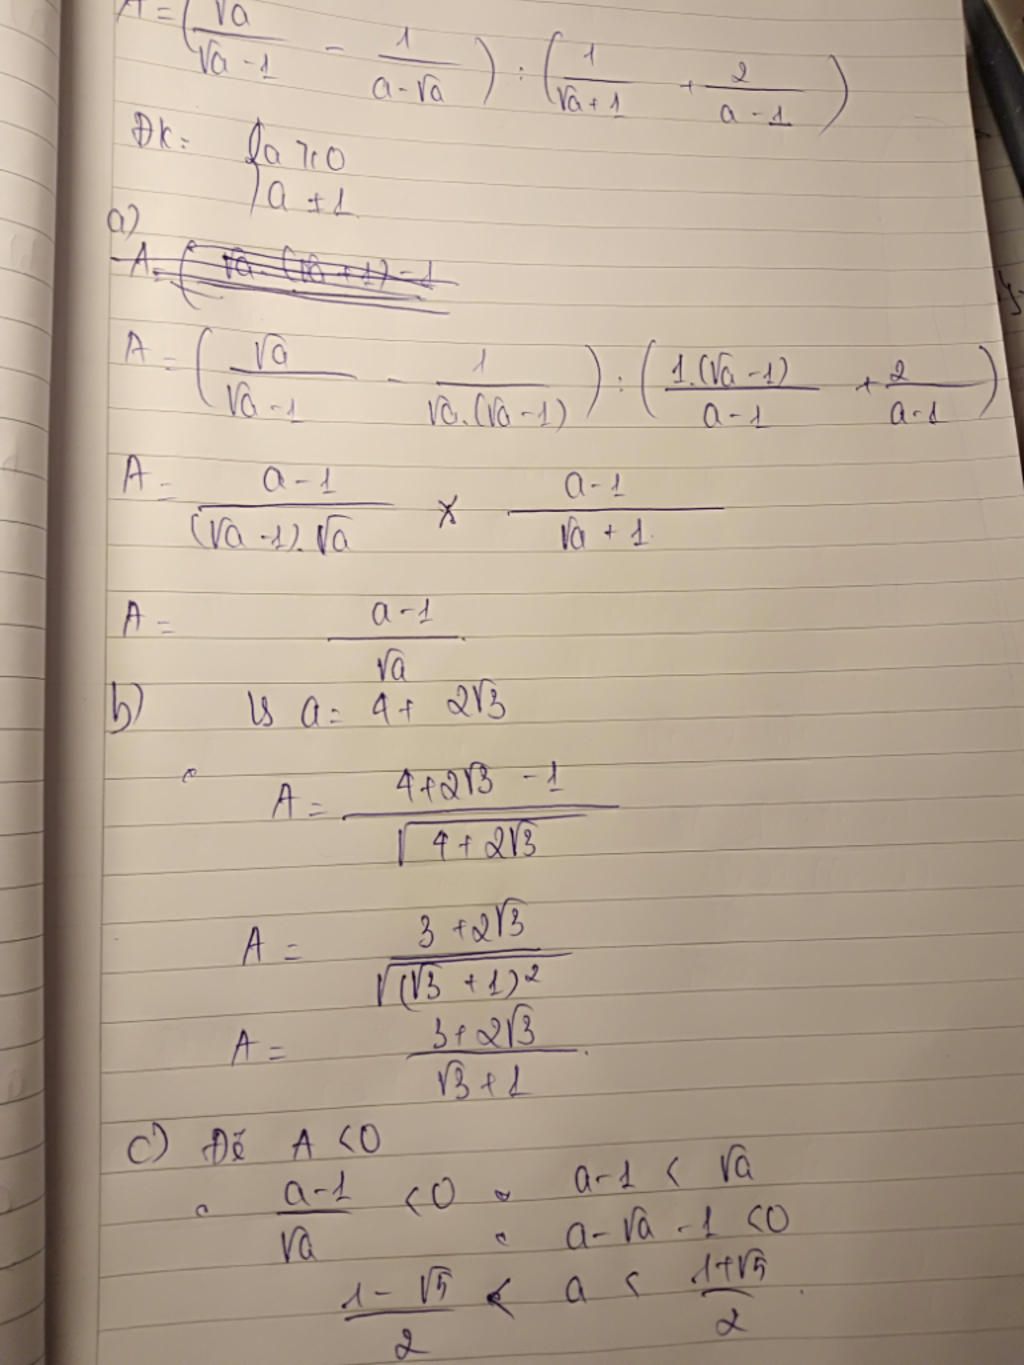 A = (√a/(√a - 1) - 1/(a - √a)) : (1/(√a + 1) + 2/(a - 1))
ĐK: { a ≥ 0
a ≠ 1
a)
A = ( √a . (√a + 1) - 1
A = (√a/(√a - 1) - 1/(√a.(√a - 1))) : (1.(√a - 1)/(a - 1) + 2/(a - 1))
A = (a - 1)/((√a - 1).√a) × (a - 1)/(√a + 1)
A = (a - 1)/√a
b) Vs a = 4 + 2√3
A = (4 + 2√3 - 1)/√(4 + 2√3)
A = (3 + 2√3)/√((√3 + 1)²)
A = (3 + 2√3)/(√3 + 1)
c) Để A < 0
(a - 1)/√a < 0 a - 1 < √a
a - √a - 1 < 0
(1 - √5)/2 < a < (1 + √5)/2